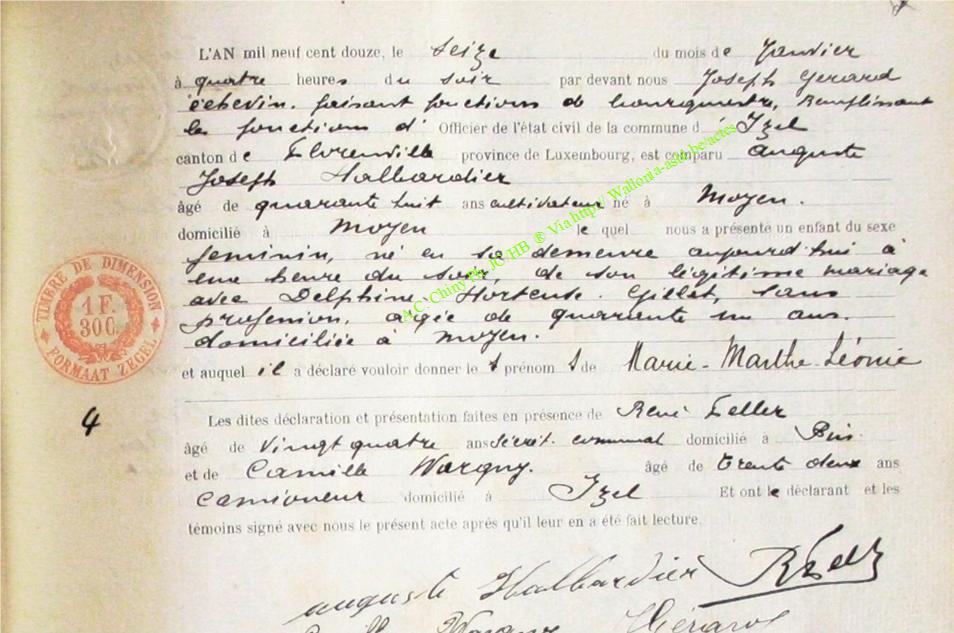 L'AN mil neuf cent douze, le seize du mois de Janvier
à quatre heures du soir par devant nous Joseph Gerard
échevin, faisant fonctions de bourgmestre, remplissant
les fonctions d' Officier de l'état civil de la commune d' Izel
canton de Florenville province de Luxembourg, est comparu Auguste
Joseph Halbardier
âgé de quarante huit ans cultivateur né à Moyen.
domicilié à Moyen le quel nous a présenté un enfant du sexe
feminin, né en sa demeure aujourd'hui à
une heure du soir, de son légitime mariage
avec Delphine Hortense Gillet, sans
profession, agée de quarante un ans.
domiciliée à Moyen.
et auquel il a déclaré vouloir donner le s prénom s de Marie-Marthe-Léonie
Les dites déclaration et présentation faites en présence de René Feller
âgé de vingt quatre ans Secrét. communal domicilié à Pin
et de Camille Wargny. âgé de trente deux ans
camioneur domicilié à Izel Et ont le déclarant et les
témoins signé avec nous le présent acte après qu'il leur en a été fait lecture.
Auguste Halbardier RFeller
Camille Wargny JGérard
4
TIMBRE DE DIMENSION
1 F.
30 C.
FORMAAT ZEGEL
A.C. Chiny Ph. JC HB ® Via http// Wallonia-asbl.be/actes